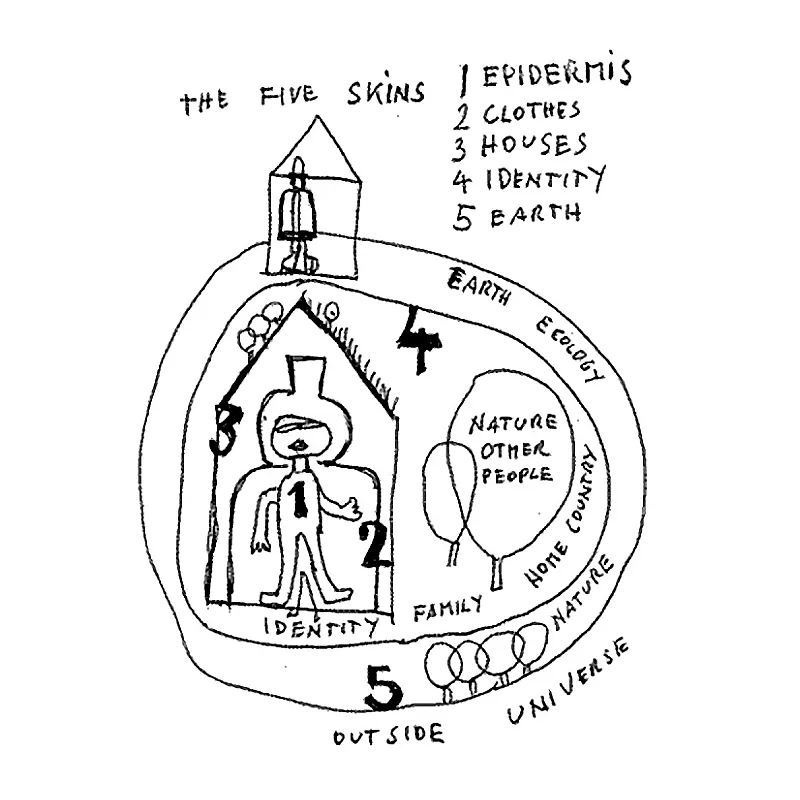 THE FIVE SKINS
1 EPIDERMIS
2 CLOTHES
3 HOUSES
4 IDENTITY
5 EARTH
EARTH ECOLOGY
4
3
NATURE
OTHER
PEOPLE
1
2
HOME COUNTRY
FAMILY
IDENTITY
NATURE
5
UNIVERSE
OUTSIDE